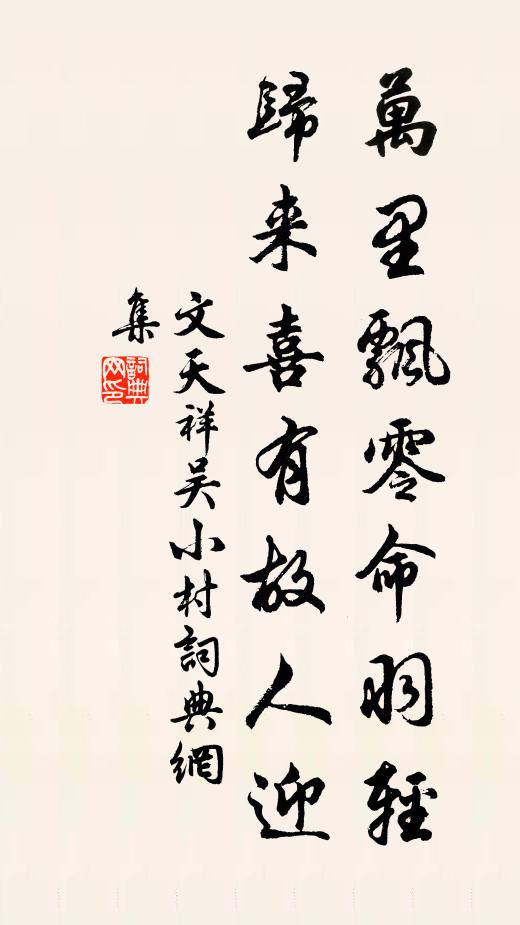 萬里飄零命羽輕
歸来喜有故人迎
文天祥吴小村詞典網
集
詞典
网印